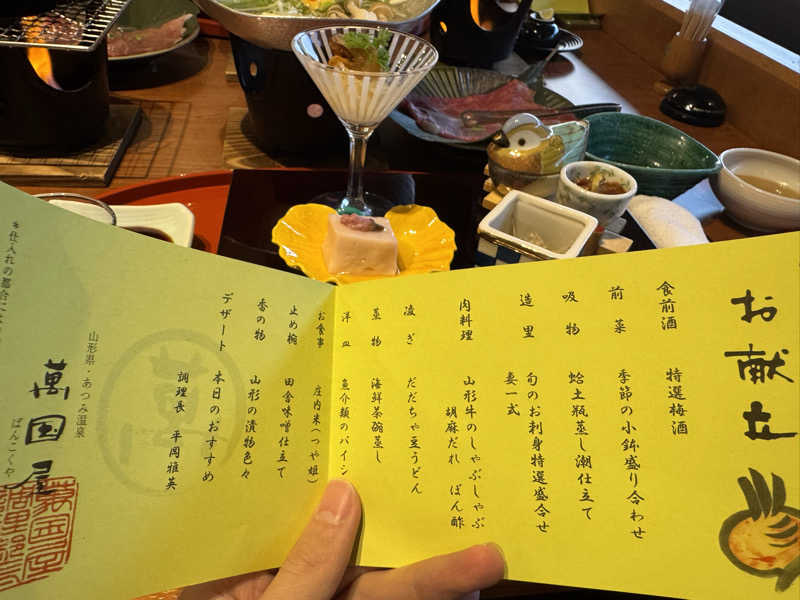 お献立
食前酒 特選梅酒
前菜 季節の小鉢盛り合わせ
吸物 蛤土瓶蒸し潮仕立て
造里 旬のお刺身特選盛合せ
妻一式
肉料理 山形牛のしゃぶしゃぶ
胡麻だれ ぽん酢
凌ぎ だだちゃ豆うどん
蒸物 海鮮茶碗蒸し
洋皿 魚介類のパイシ
お食事 庄内米(つや姫)
止め椀 田舎味噌仕立て
香の物 山形の漬物色々
デザート 本日のおすすめ
調理長 平岡雅英
萬
山形県・あつみ温泉
萬国屋
ばんこくや
*仕入れの都合によ